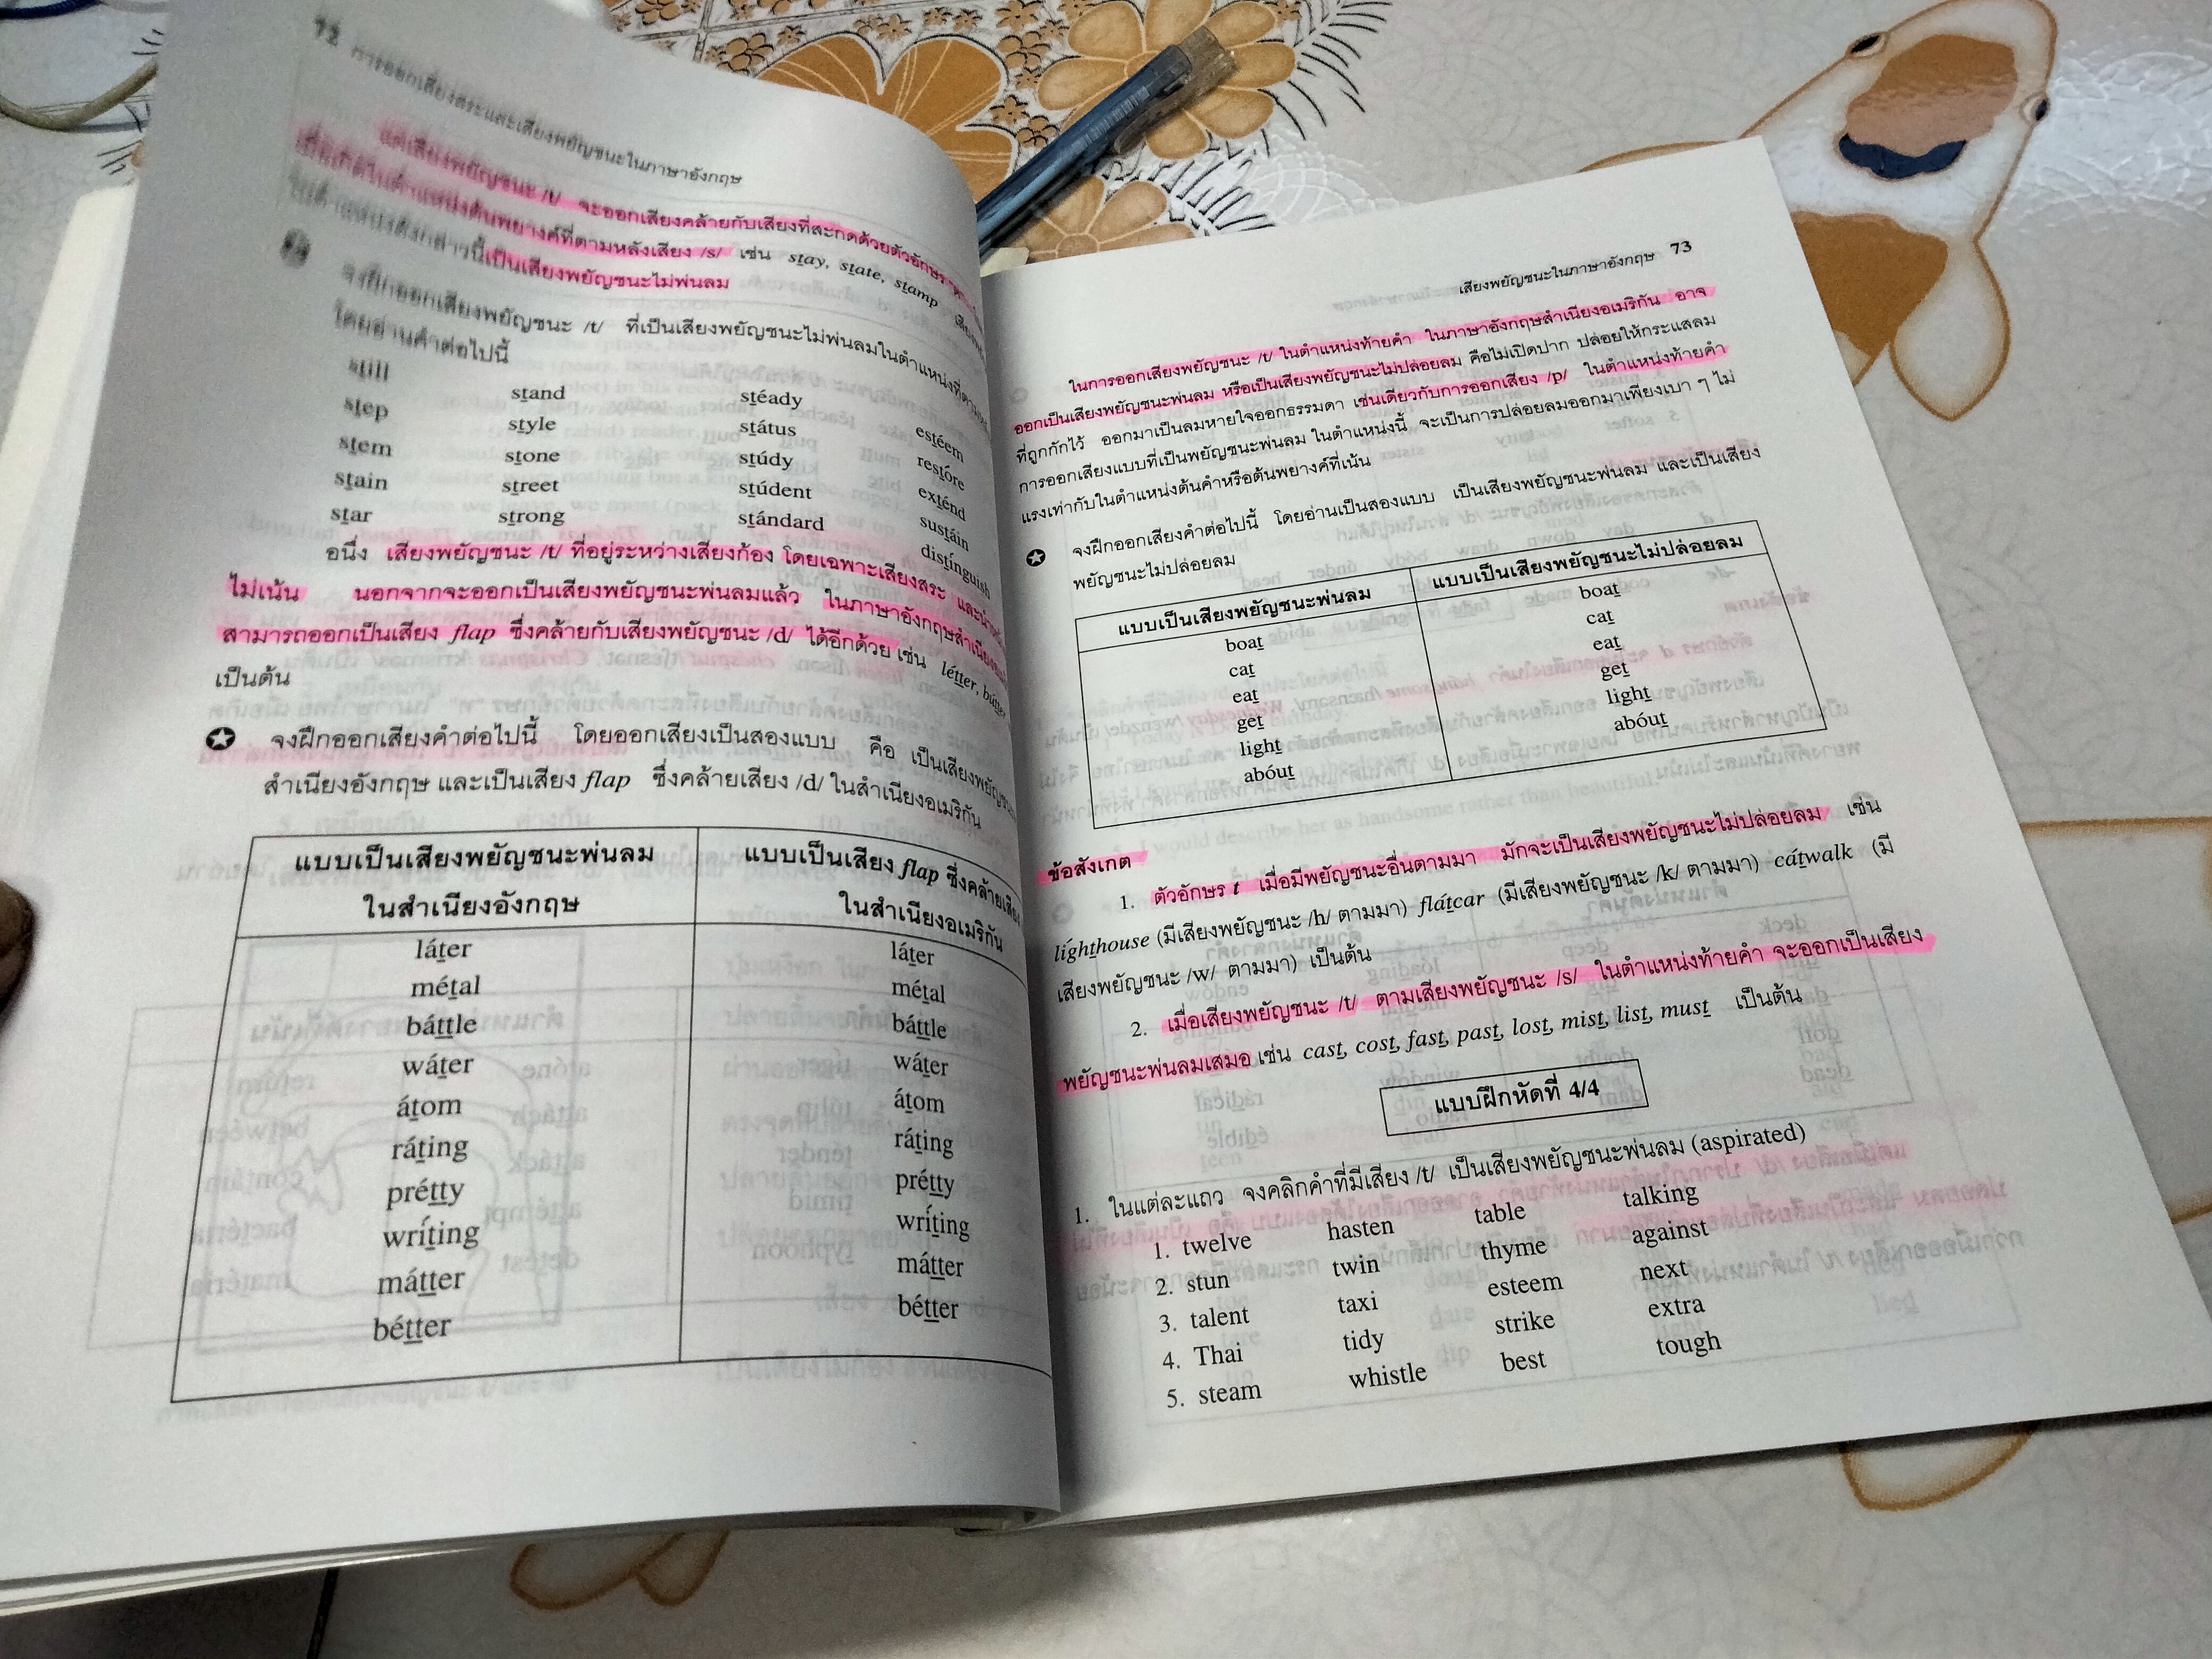 72 การออกเสียงสระและเสียงพยัญชนะในภาษาอังกฤษ
แต่เสียงพยัญชนะ /t/ จะออกเสียงคล้ายกับเสียงที่สะกดด้วยตัวอักษร
เมื่อเกิดในตำแหน่งต้นพยางค์ที่ตามหลังเสียง /s/ เช่น stay, state, stamp
ในตำแหน่งดังกล่าวนี้เป็นเสียงพยัญชนะไม่พ่นลม
จงฝึกออกเสียงพยัญชนะ /t/ ที่เป็นเสียงพยัญชนะไม่พ่นลมในตำแหน่งที่ตาม
โดยอ่านคำต่อไปนี้
still stand stéady estéem
step style státus restóre
stem stone stúdy exténd
stain street stúdent sustáin
star strong stándard distínguish
อนึ่ง เสียงพยัญชนะ /t/ ที่อยู่ระหว่างเสียงก้อง โดยเฉพาะเสียงสระ และ
ไม่เน้น นอกจากจะออกเป็นเสียงพยัญชนะพ่นลมแล้ว ในภาษาอังกฤษสำเนียง
สามารถออกเป็นเสียง flap ซึ่งคล้ายกับเสียงพยัญชนะ /d/ ได้อีกด้วย เช่น létter, bútter
เป็นต้น
✪ จงฝึกออกเสียงคำต่อไปนี้ โดยออกเสียงเป็นสองแบบ คือ เป็นเสียงพยัญชนะ
สำเนียงอังกฤษ และเป็นเสียง flap ซึ่งคล้ายเสียง /d/ ในสำเนียงอเมริกัน
แบบเป็นเสียงพยัญชนะพ่นลม แบบเป็นเสียง flap ซึ่งคล้ายเสียง
ในสำเนียงอังกฤษ ในสำเนียงอเมริกัน
láter láter
métal métal
báttle báttle
wáter wáter
átom átom
ráting ráting
prétty prétty
wríting wríting
mátter mátter
bétter bétter
เสียงพยัญชนะในภาษาอังกฤษ 73
ในการออกเสียงพยัญชนะ /t/ ในตำแหน่งท้ายคำ ในภาษาอังกฤษสำเนียงอเมริกัน อาจ
ออกเป็นเสียงพยัญชนะพ่นลม หรือเป็นเสียงพยัญชนะไม่ปล่อยลม คือไม่เปิดปาก ปล่อยให้กระแสลม
ที่ถูกกักไว้ ออกมาเป็นลมหายใจออกธรรมดา เช่นเดียวกับการออกเสียง /p/ ในตำแหน่งท้ายคำ
การออกเสียงแบบที่เป็นพยัญชนะพ่นลม ในตำแหน่งนี้ จะเป็นการปล่อยลมออกมาเพียงเบา ๆ ไม่
แรงเท่ากับในตำแหน่งต้นคำหรือต้นพยางค์ที่เน้น
✪ จงฝึกออกเสียงคำต่อไปนี้ โดยอ่านเป็นสองแบบ เป็นเสียงพยัญชนะพ่นลม และเป็นเสียง
พยัญชนะไม่ปล่อยลม
แบบเป็นเสียงพยัญชนะพ่นลม แบบเป็นเสียงพยัญชนะไม่ปล่อยลม
boat boat
cat cat
eat eat
get get
light light
abóut abóut
ข้อสังเกต
1. ตัวอักษร t เมื่อมีพยัญชนะอื่นตามมา มักจะเป็นเสียงพยัญชนะไม่ปล่อยลม เช่น
líghthouse (มีเสียงพยัญชนะ /h/ ตามมา) flátcar (มีเสียงพยัญชนะ /k/ ตามมา) cátwalk (มี
เสียงพยัญชนะ /w/ ตามมา) เป็นต้น
2. เมื่อเสียงพยัญชนะ /t/ ตามเสียงพยัญชนะ /s/ ในตำแหน่งท้ายคำ จะออกเป็นเสียง
พยัญชนะพ่นลมเสมอ เช่น cast, cost, fast, past, lost, mist, list, must เป็นต้น
แบบฝึกหัดที่ 4/4
1. ในแต่ละแถว จงคลิกคำที่มีเสียง /t/ เป็นเสียงพยัญชนะพ่นลม (aspirated)
1. twelve hasten table talking
2. stun twin thyme against
3. talent taxi esteem next
4. Thai tidy strike extra
5. steam whistle best tough